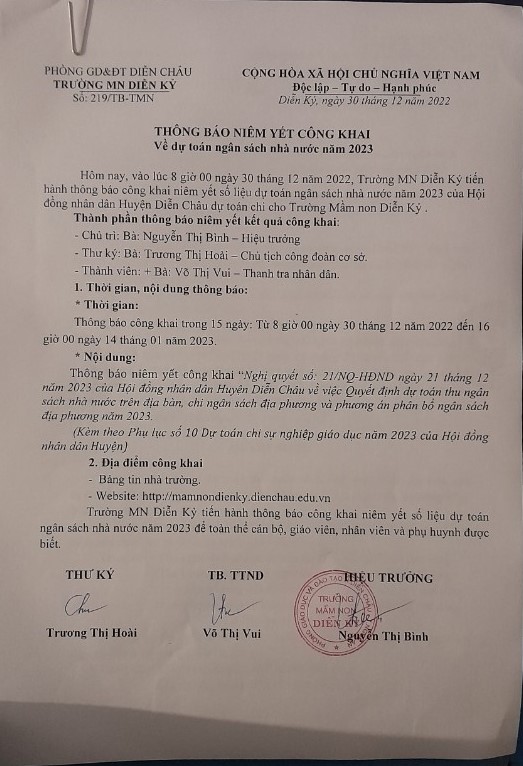 PHÒNG GD&ĐT DIỄN CHÂU
TRƯỜNG MN DIỄN KỶ
Số: 219/TB-TMN
CỘNG HÒA XÃ HỘI CHỦ NGHĨA VIỆT NAM
Độc lập – Tự do – Hạnh phúc
Diễn Kỷ, ngày 30 tháng 12 năm 2022
THÔNG BÁO NIÊM YẾT CÔNG KHAI
Về dự toán ngân sách nhà nước năm 2023
Hôm nay, vào lúc 8 giờ 00 ngày 30 tháng 12 năm 2022, Trường MN Diễn Kỷ tiến
hành thông báo công khai niêm yết số liệu dự toán ngân sách nhà nước năm 2023 của Hội
đồng nhân dân Huyện Diễn Châu dự toán chi cho Trường Mầm non Diễn Kỷ .
Thành phần thông báo niêm yết kết quả công khai:
- Chủ trì: Bà: Nguyễn Thị Bình – Hiệu trưởng
- Thư ký: Bà: Trương Thị Hoài – Chủ tịch công đoàn cơ sở.
- Thành viên: + Bà: Võ Thị Vui – Thanh tra nhân dân.
1. Thời gian, nội dung thông báo:
* Thời gian:
Thông báo công khai trong 15 ngày: Từ 8 giờ 00 ngày 30 tháng 12 năm 2022 đến 16
giờ 00 ngày 14 tháng 01 năm 2023.
* Nội dung:
Thông báo niêm yết công khai “Nghị quyết số: 21/NQ-HĐND ngày 21 tháng 12
năm 2023 của Hội đồng nhân dân Huyện Diễn Châu về việc Quyết định dự toán thu ngân
sách nhà nước trên địa bàn, chi ngân sách địa phương và phương án phân bổ ngân sách
địa phương năm 2023.
(Kèm theo Phụ lục số 10 Dự toán chi sự nghiệp giáo dục năm 2023 của Hội đồng
nhân dân Huyện)
2. Địa điểm công khai
- Bảng tin nhà trường.
- Website: http://mamnondienky.dienchau.edu.vn
Trường MN Diễn Kỷ tiến hành thông báo công khai niêm yết số liệu dự toán
ngân sách nhà nước năm 2023 để toàn thể cán bộ, giáo viên, nhân viên và phụ huynh được
biết.
THƯ KÝ
TB. TTND
HIỆU TRƯỞNG
TRƯỜNG
MẦM NON
DIỄN KỶ
Trương Thị Hoài
Võ Thị Vui
Nguyễn Thị Bình